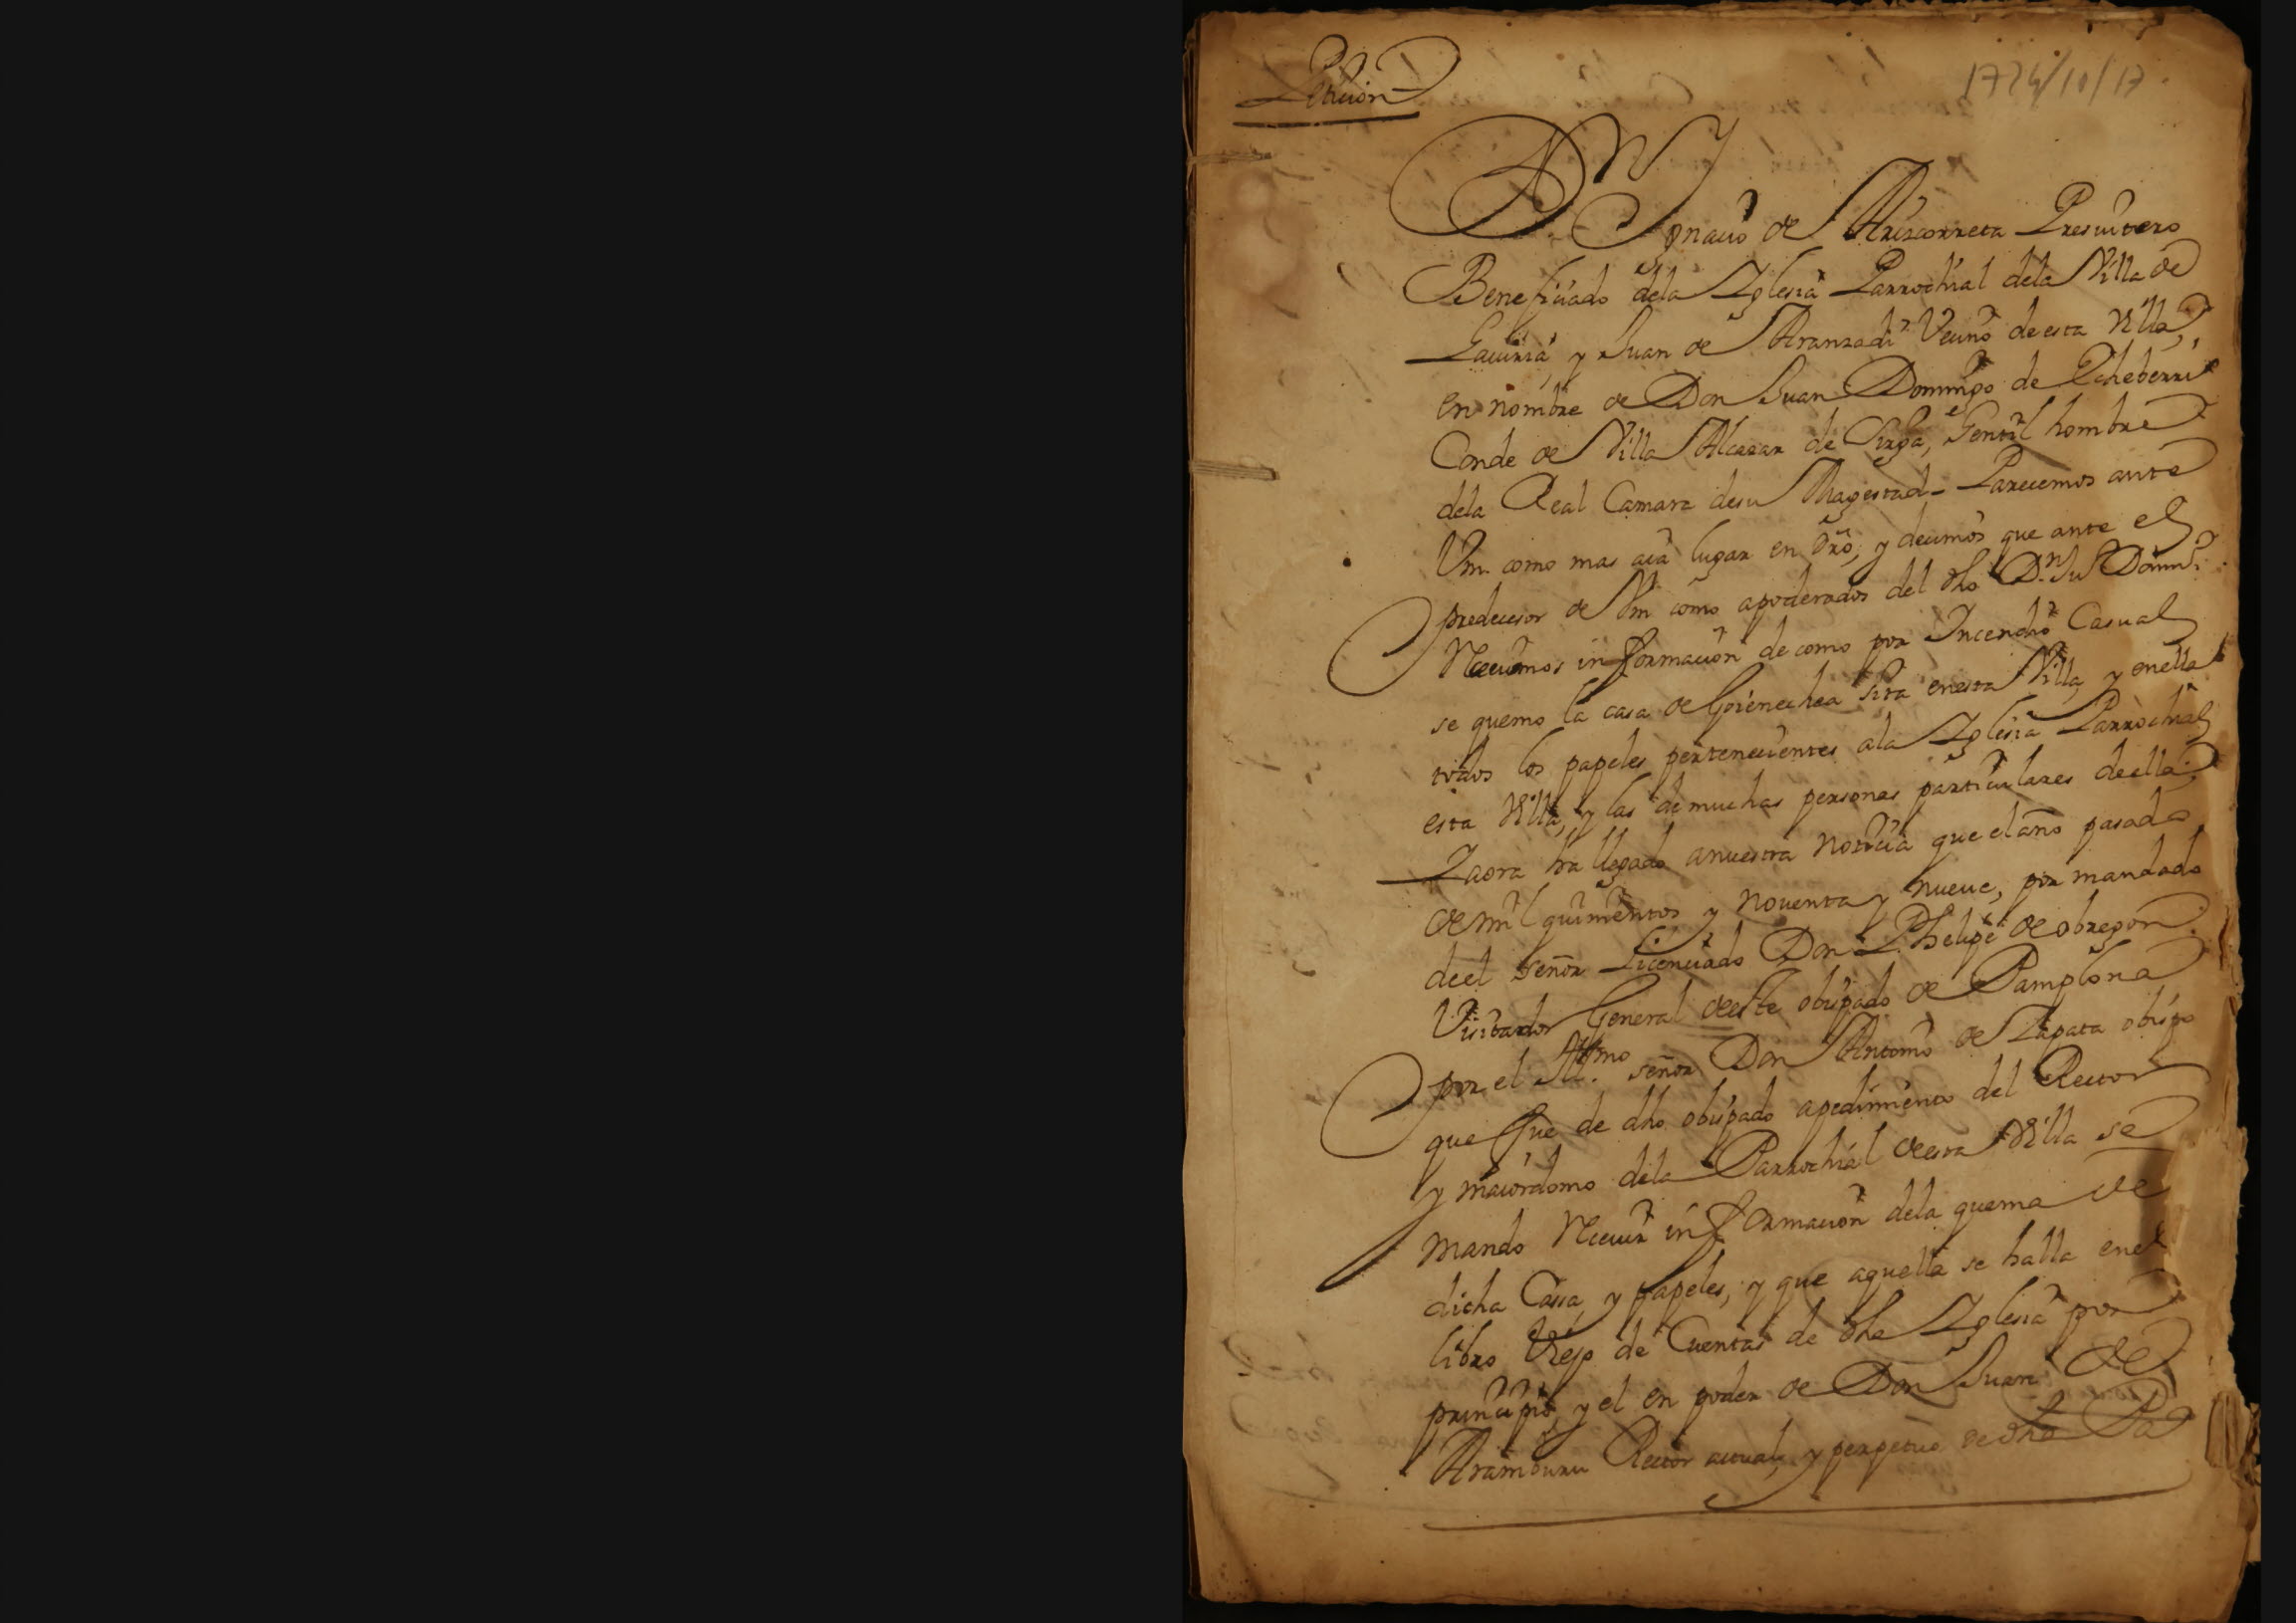 Peticion
1724/10/17
Dn
Ignacio de Arizcorreta Presuitero
Beneficiado dela Iglesia Parrochial dela Villa de
Gauiria, y Juan de Aranzadi Vecino de esta Villa,
en nombre de Don Juan Domingo de Echeberri
Conde de Villa Alcazar de Sirga, Gentil hombre
dela Real Camara desu Magestad - Parecemos ante
Vm. como mas aia lugar en dro, y decimos que ante el
predecesor de Vm como apoderados del dho Dn. Ju Domingo
Receuimos informacion de como por Incendio Casual
se quemo la casa de Goienechea sita enesta Villa, y enella
todos los papeles pertenecientes ala Iglesia Parrochial
esta Villa, y las de muchas personas particulares deella;
Y aora ha llegado anuestra noticia que el año pasado
de mil quinientos y nouenta y nueue, por mandado
deel señor Licenciado Don Phelipe de obregon
Visitador General deeste obispado de Pamplona
por el Illmo. señor Don Antonio de Zapata obispo
que fue de dho obispado apedimiento del Rector
y maiordomo dela Parrochial deesta Villa se
mando Receuir informacion dela quema de
dicha Cassa, y papeles, y que aquella se halla enel
libro Viejo de Cuentas de dha Iglesia por
principio, y el en poder de Don Juan de
Aramburu Rector actual, y perpetuo de dha Pa